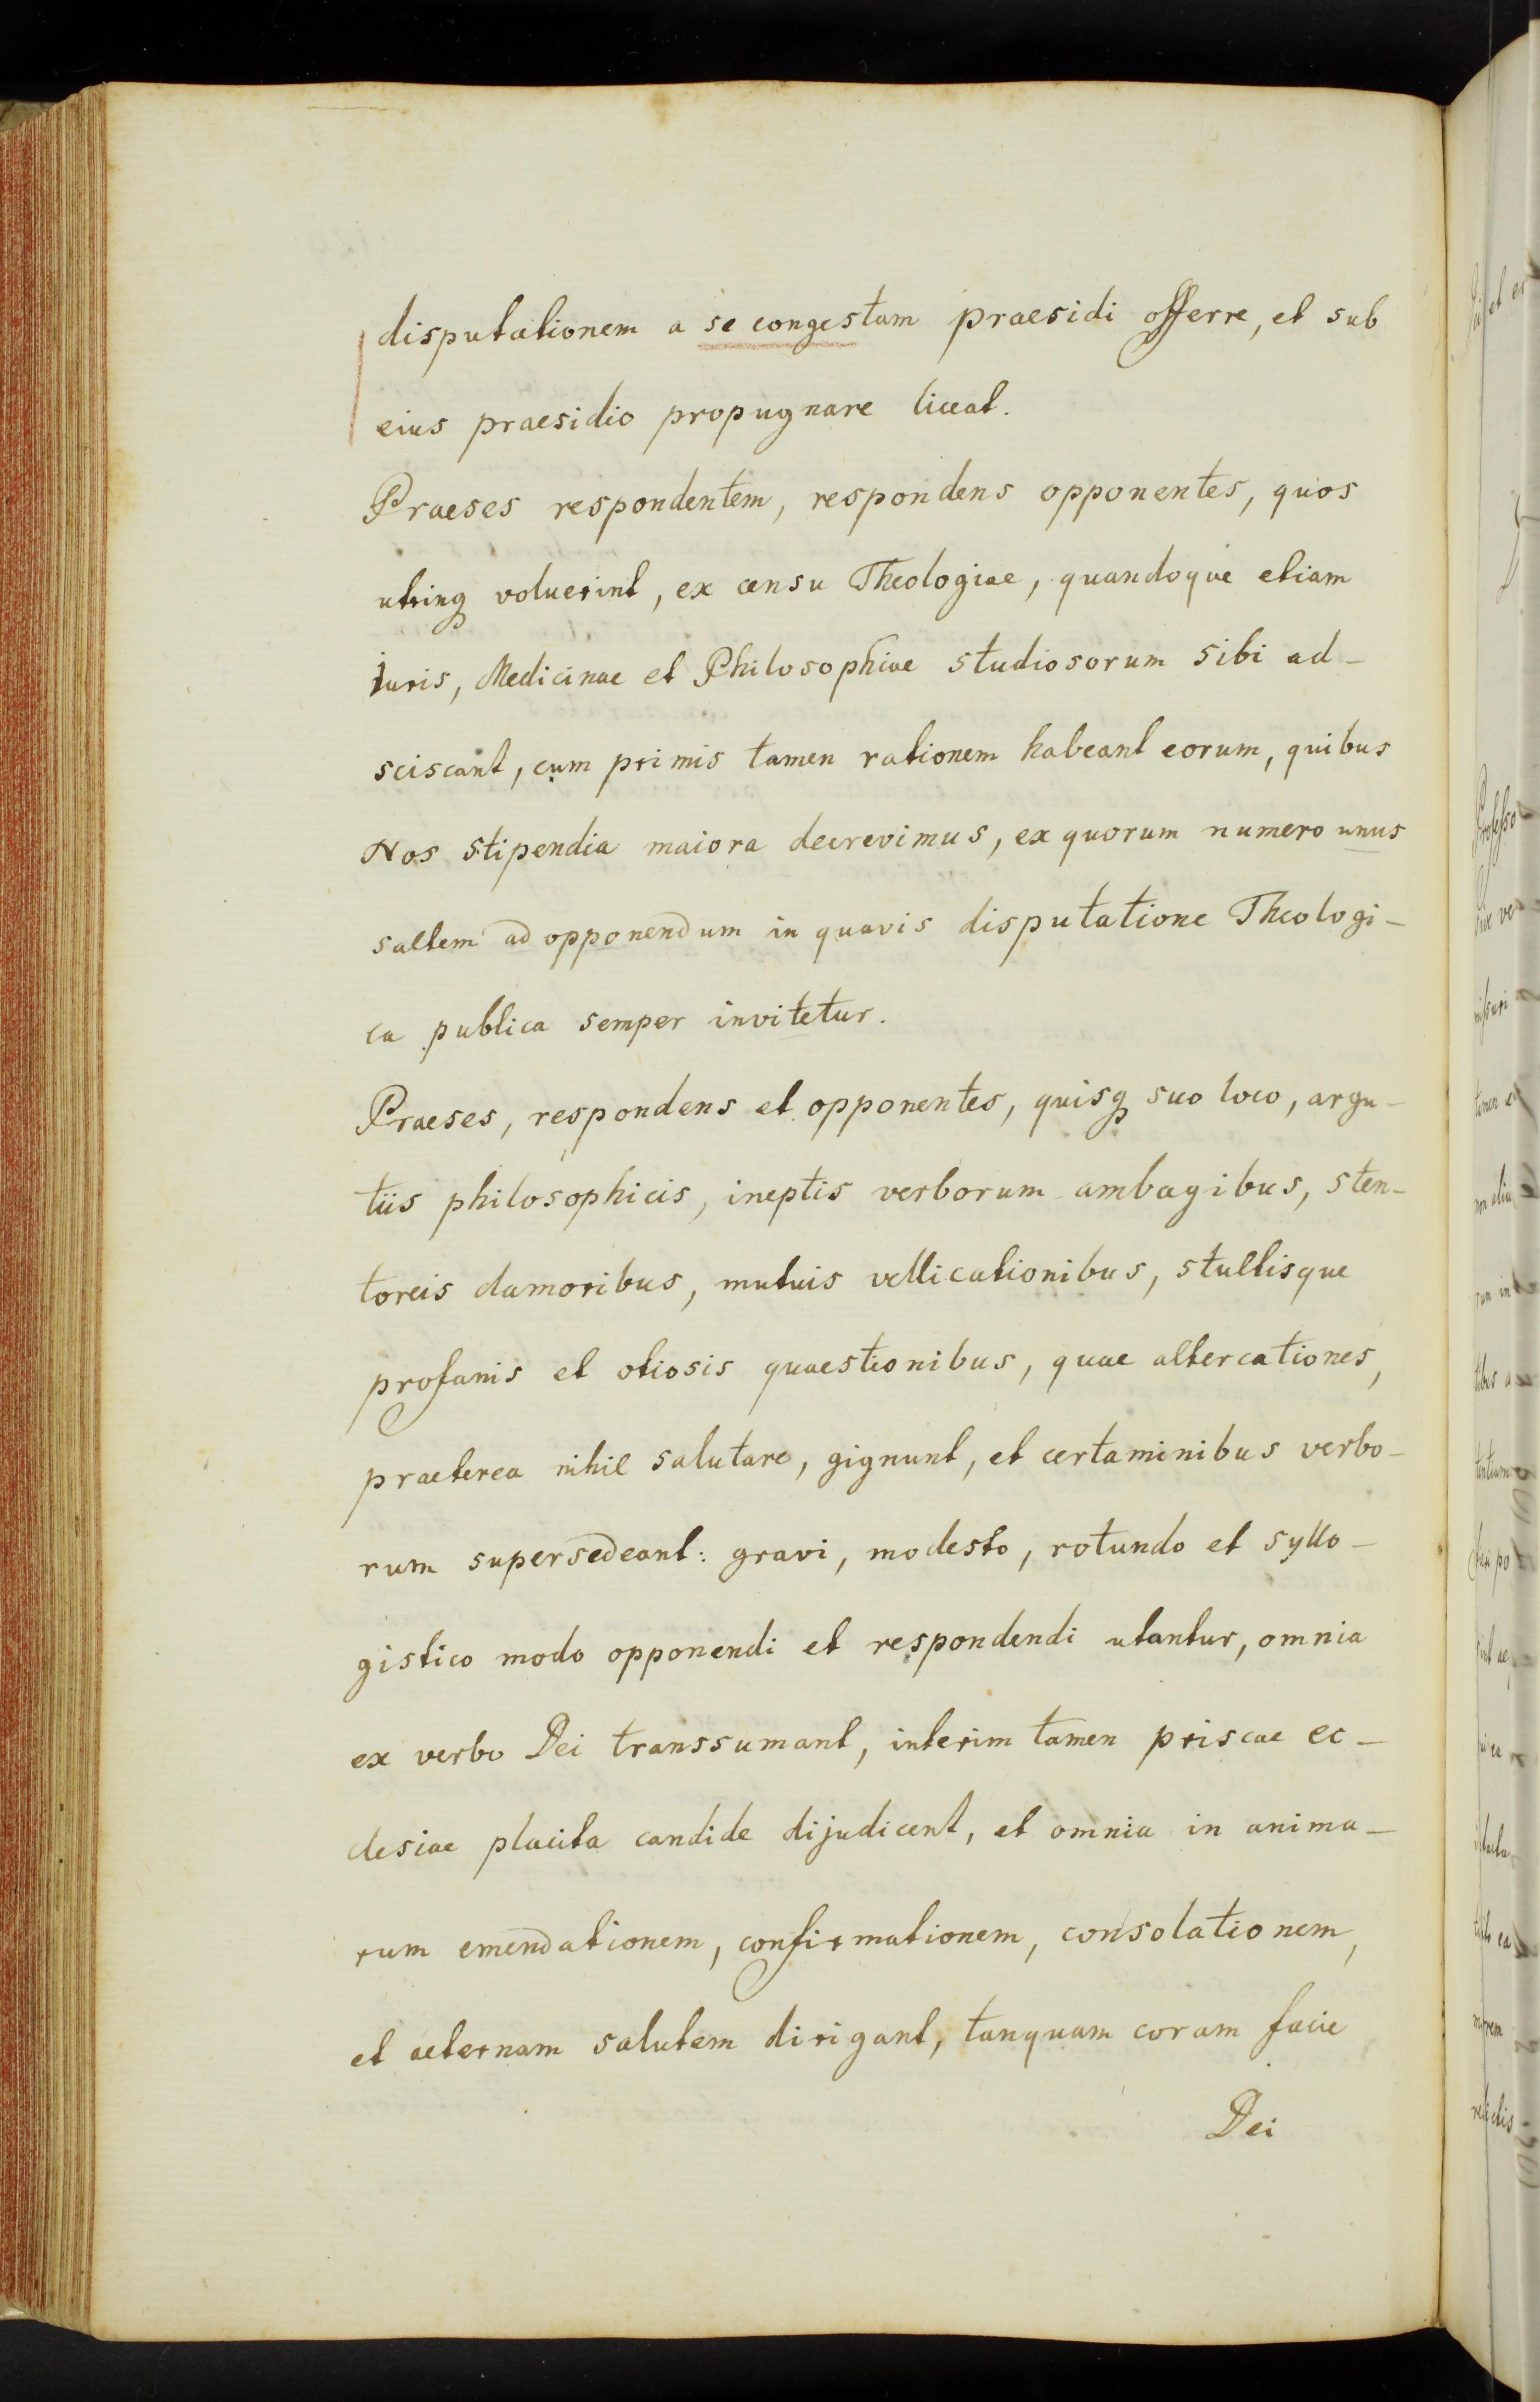 disputationem a se congestam praesidi offerre, et sub
eius praesidio propugnare liceat.
Praeses respondentem, respondens opponentes, quos
utrinq voluerint, ex censu Theologiae, quandoque etiam
iuris, Medicinae et Philosophiae studiosorum sibi ad-
sciscant, cum primis tamen rationem habeant eorum, quibus
Nos stipendia maiora decrevimus, ex quorum numero unus
saltem ad opponendum in quavis disputatione Theologi-
ca publica semper invitetur.
Praeses, respondens et opponentes, quisq suo loco, argu-
tiis philosophicis, ineptis verborum ambagibus, sten-
toreis clamoribus, mutuis vellicationibus, stultisque
profanis et otiosis quaestionibus, quae altercationes,
praeterea nihil salutare, gignunt, et certaminibus verbo-
rum supersedeant: gravi, modesto, rotundo et syllo-
gistico modo opponendi et respondendi utantur, omnia
ex verbo Dei transsumant, interim tamen priscae ec-
clesiae placita candide dijudicent, et omnia in anima-
rum emendationem, confirmationem, consolationem,
et aeternam salutem dirigant, tanquam coram facie
Dei